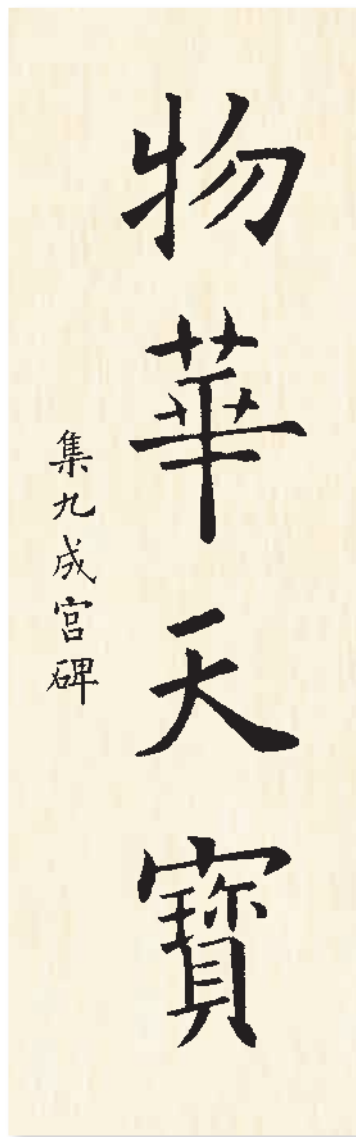 物華天寶
集九成宮碑